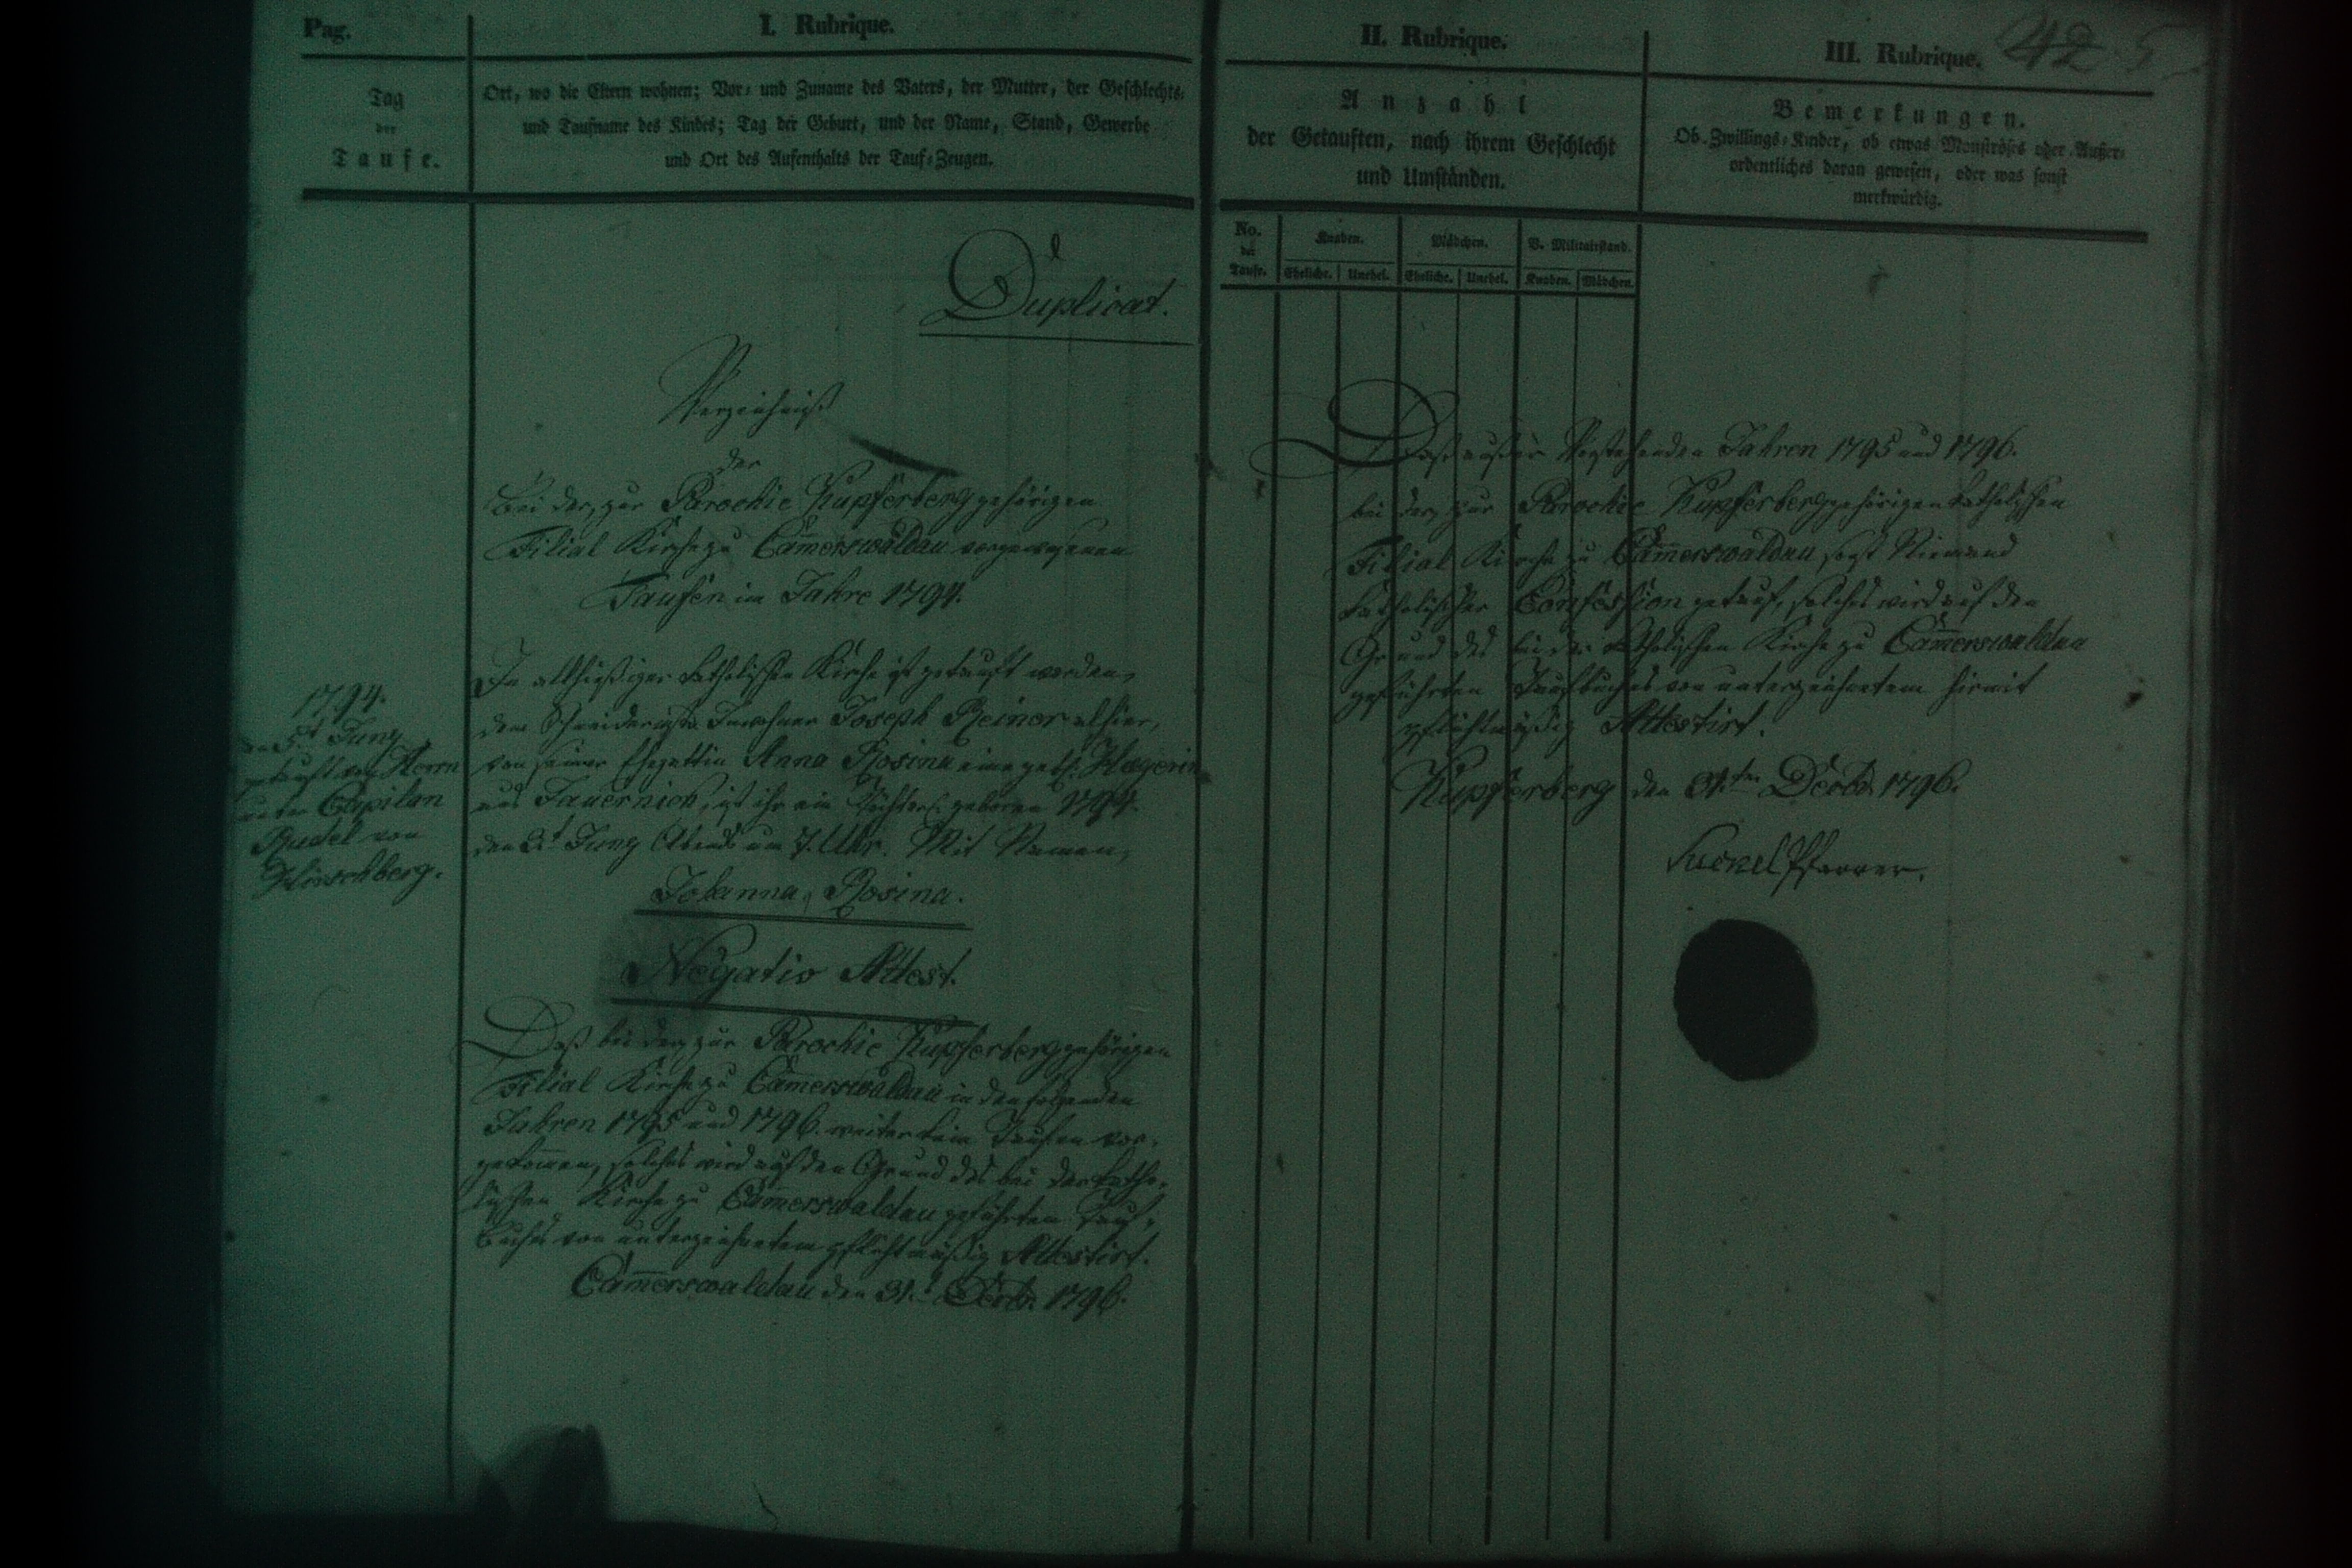 Pag.
Tag
der
Taufe.
I. Rubrique.
Ort, wo die Eltern wohnen; Vor- und Zuname des Vaters, der Mutter, der Geschlechts-
und Taufname des Kindes; Tag der Geburt, und der Name, Stand, Gewerbe
und Ort des Aufenthalts der Tauf-Zeugen.
Duplicat.
Verzeichniß
der
bei der, zur Parochie Kupferberg gehörigen
Filial Kirche zu Cam̄erswaldau vorgewesenen
Taufen im Jahre 1794.
1794.
den 5t Juny
getauft von Herrn
Capilan
Rudel von
Hirschberg.
In allhiesiger katholischen Kirche ist getauft worden,
dem Schneider Inwohner Joseph Reiner alhier,
von seiner Ehegattin Anna Rosina eine geb. Hægerin
aus Jauernick, ist ihr ein Töchterl. geboren 1794.
den 3t Juny Abends um 7. Uhr. Mit Namen,
Johanna, Rosina.
Negativ Attest.
Daß bei der, zur Parochie Kupferberg gehörigen
Filial Kirche zu Cam̄erswaldau in den folgenden
Jahren 1795 und 1796. weiter kein Taufen vor-
gekom̄en, solches wird auf den Grund des bei der katho-
lischen Kirche zu Cam̄erswaldau geführten Tauf-
Buchs von unterzeichnetem pflichtmäßig Attestirt.
Cam̄erswaldau den 31.t Decbr. 1796.
II. Rubrique.
Anzahl
der Getauften, nach ihrem Geschlecht
und Umständen.
No. der Taufe.
Knaben. Mädchen. V. Militairstand.
Eheliche. Unehel. Eheliche. Unehel. Knaben. Mädchen.
III. Rubrique. 42
Bemerkungen.
Ob Zwillings-Kinder, ob etwas Monströses oder Außer-
ordentliches daran gewesen, oder was sonst
merkwürdig.
Daß außer Jahren 1795 und 1796.
bei der, zur Parochie Kupferberg gehörigen katholischen
Filial Kirche zu Cam̄erswaldau sonst Niemand
katholischer Confession getauft, solches wird auf den
Grund des bei der katholischen Kirche zu Cam̄erswaldau
geführten Taufbuches von unterzeichnetem hiermit
pflichtmäßig Attestirt.
Kupferberg den 31.ten Decbr. 1796.
Pfarrer.